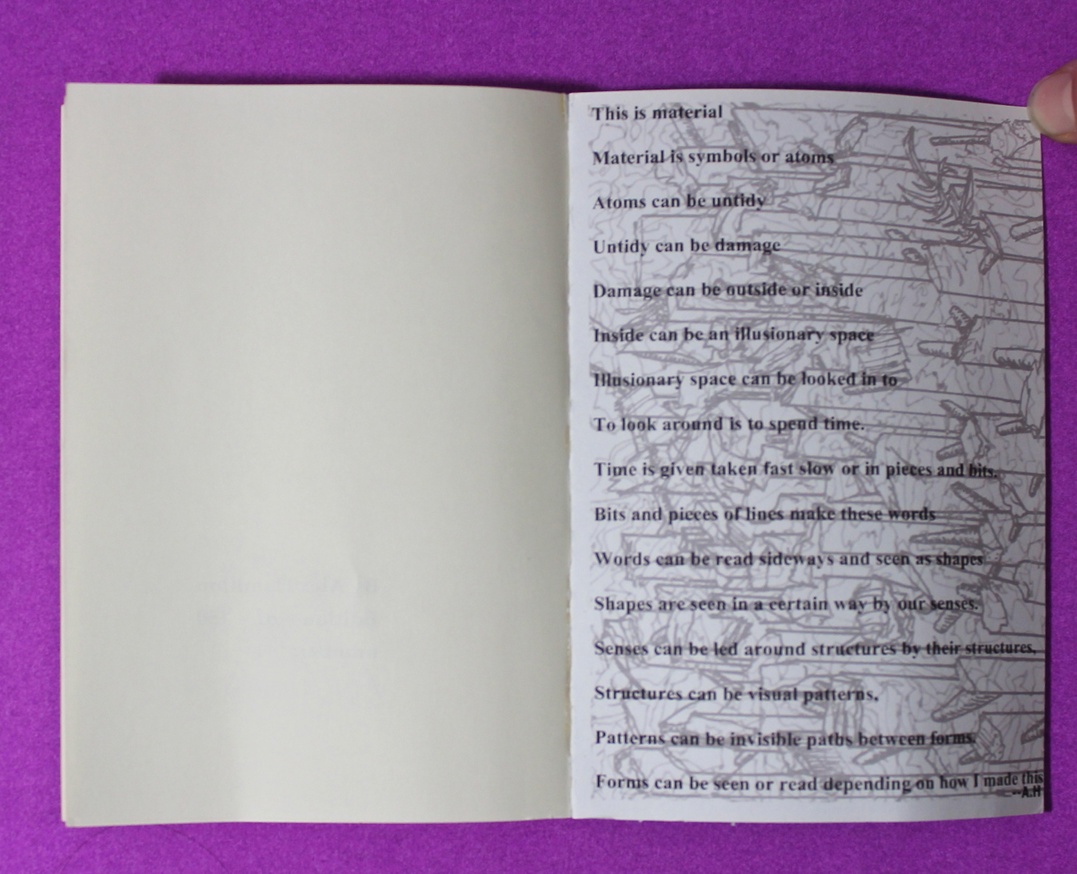 This is material
Material is symbols or atoms
Atoms can be untidy
Untidy can be damage
Damage can be outside or inside
Inside can be an illusionary space
Illusionary space can be looked in to
To look around is to spend time.
Time is given taken fast slow or in pieces and bits.
Bits and pieces of lines make these words
Words can be read sideways and seen as shapes
Shapes are seen in a certain way by our senses.
Senses can be led around structures by their structures.
Structures can be visual patterns.
Patterns can be invisible paths between forms.
Forms can be seen or read depending on how I made this
--A.H